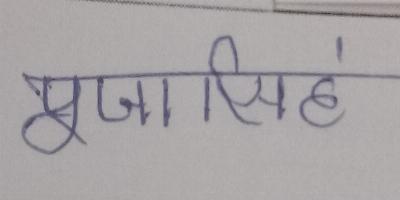 पूजा सिहं